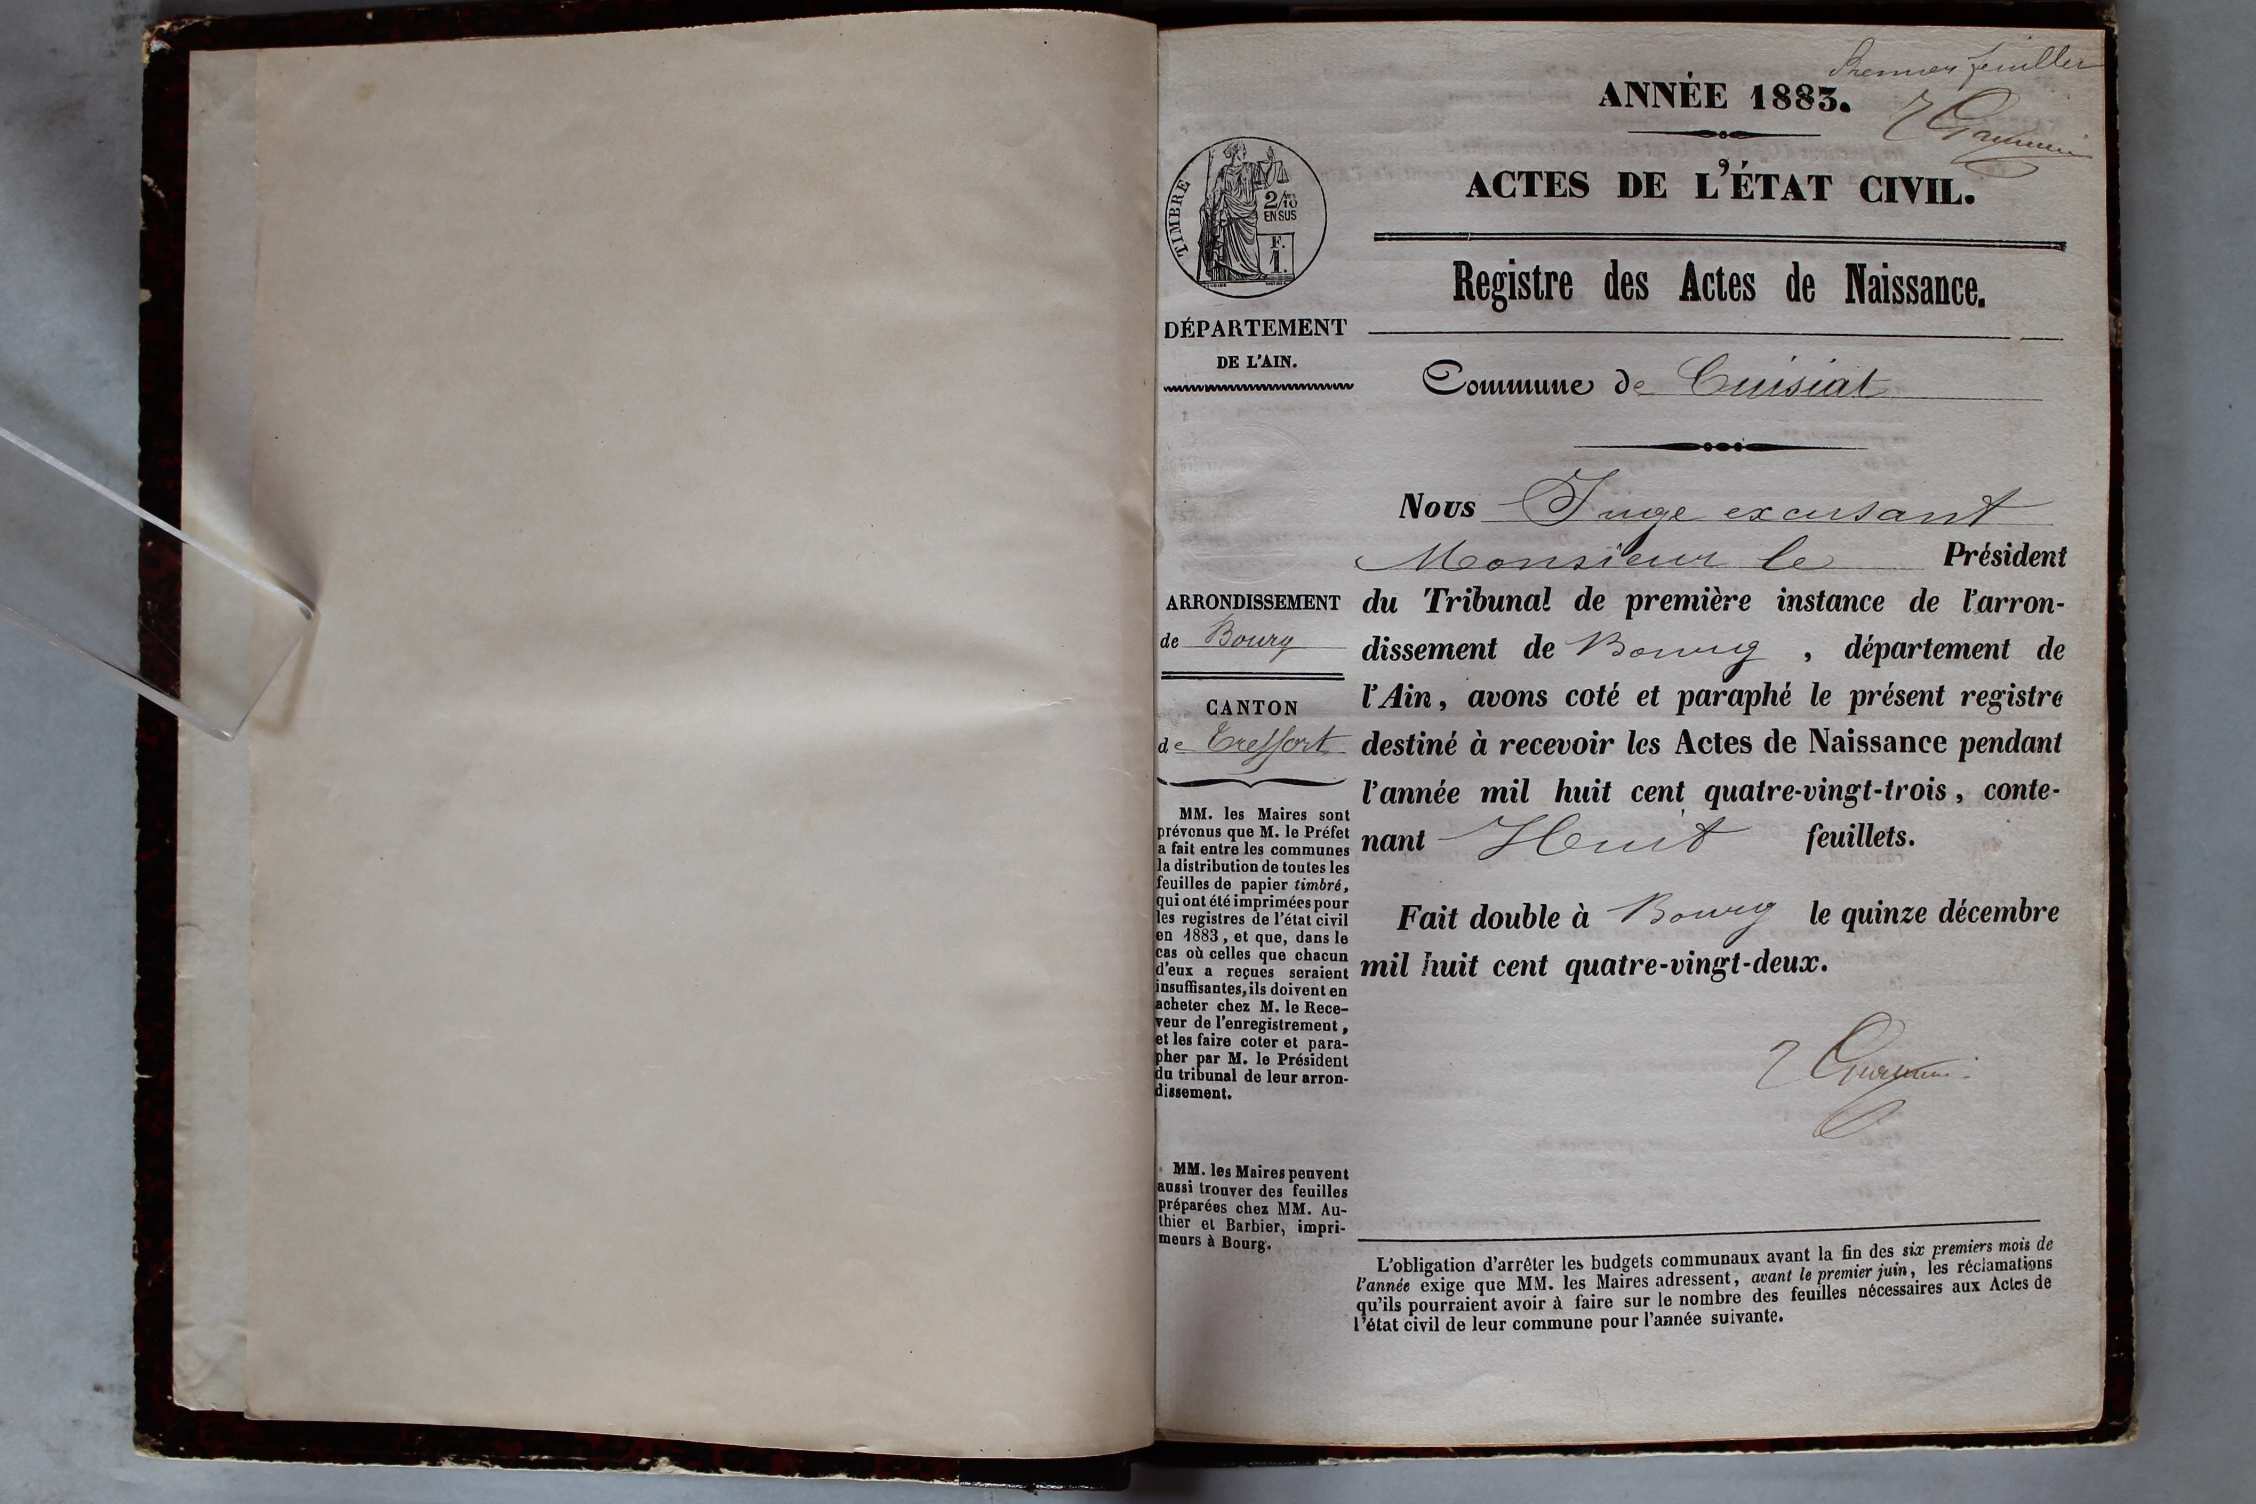 Premier feuillet
ANNÉE 1883.
ACTES DE L'ÉTAT CIVIL.
TIMBRE
2/10 EN SUS
F. 1.
Registre des Actes de Naissance.
DÉPARTEMENT
DE L'AIN.
Commune de Cuisiat
Nous Juge excusant
Monsieur le Président
du Tribunal de première instance de l'arron-
dissement de Bourg , département de
l'Ain, avons coté et paraphé le présent registre
destiné à recevoir les Actes de Naissance pendant
l'année mil huit cent quatre-vingt-trois, conte-
nant Huit feuillets.
Fait double à Bourg le quinze décembre
mil huit cent quatre-vingt-deux.
ARRONDISSEMENT
de Bourg
CANTON
de Treffort
MM. les Maires sont
prévenus que M. le Préfet
a fait entre les communes
la distribution de toutes les
feuilles de papier timbré,
qui ont été imprimées pour
les registres de l'état civil
en 1883, et que, dans le
cas où celles que chacun
d'eux a reçues seraient
insuffisantes, ils doivent en
acheter chez M. le Rece-
veur de l'enregistrement,
et les faire coter et para-
pher par M. le Président
du tribunal de leur arron-
dissement.
MM. les Maires peuvent
aussi trouver des feuilles
préparées chez MM. Au-
thier et Barbier, impri-
meurs à Bourg.
L'obligation d'arrêter les budgets communaux avant la fin des six premiers mois de
l'année exige que MM. les Maires adressent, avant le premier juin, les réclamations
qu'ils pourraient avoir à faire sur le nombre des feuilles nécessaires aux Actes de
l'état civil de leur commune pour l'année suivante.